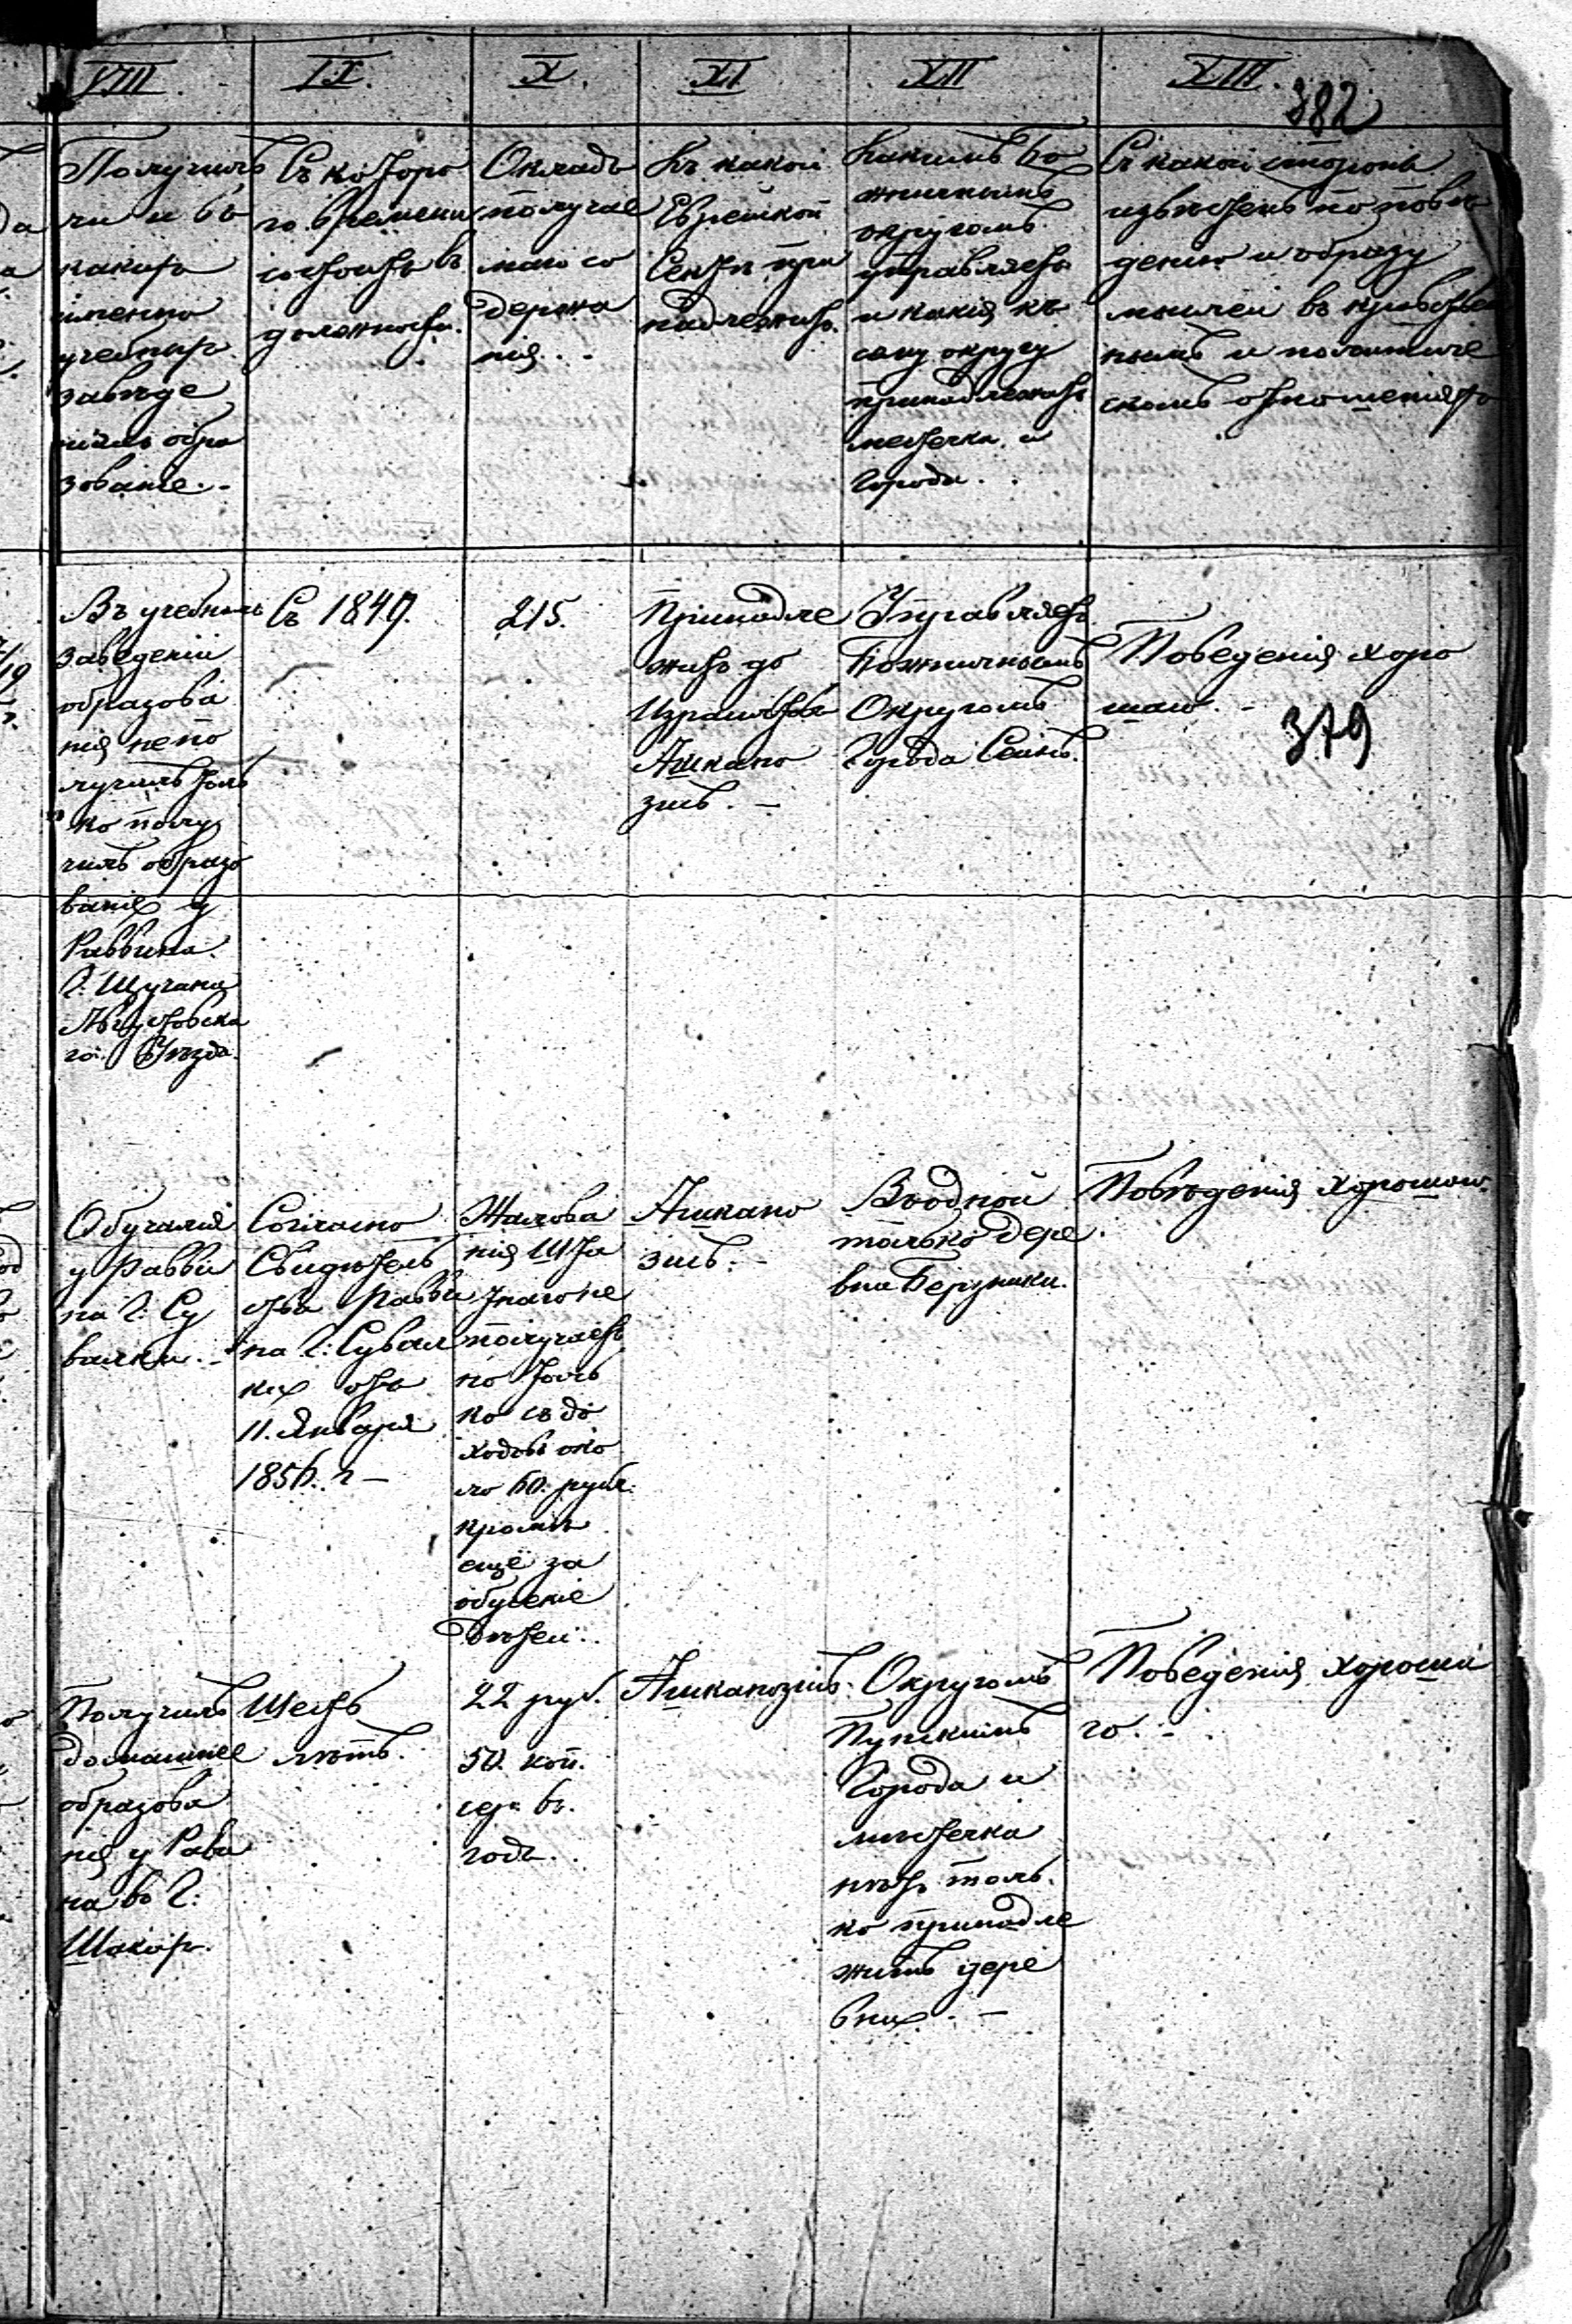 VIII
Получилъ
ли и въ
какихъ
именно
учебныхъ
заведе
ніяхъ обра
зованіе. -
IX.
Съ которо
го времени
состоитъ въ
должности.
X.
Окладъ
получае
маго со
держа
нія. -
XI
Къ какой
Еврейской
Сектѣ при
надлежитъ.
XII
Какимъ бо
жничнымъ
округомъ
управляетъ
и какія къ
сему округу
принадлежатъ
местечка и
города.
XIII.
382
Съ какой стороны
извѣстенъ по пове
денію и образу
мыслей въ нравствен
номъ и политиче
скомъ отношеніяхъ
Въ учебномъ
заведеніи
образова
нія непо
лучилъ толь
ко полу
чилъ образо
ваніе у
Раввина
Г. Щучина
Августовска
го Уѣзда.
Съ 1847.
215.
Принадле
житъ до
Израилтовъ
Ашкано
зимъ. -
Управляетъ
Божничнымъ
Округомъ
Города Сейнъ.
Поведенія хоро
шаго. -
379
Обучался
у Равви
на Г: Су
валки. -
Согласно
Свидѣтель
ства Равви
на Г: Сувал
кихъ отъ
11. Января
1856. г -
Жалова
нія Шта
тнаго не
получаетъ
но толь
ко съ до
ходовъ око
ло 60. рубл.
кромѣ
ещё за
обученіе
дѣтей..
Ашкано
зимъ. -
Въ одной
только дере
вна Бержники.
Повѣденія хорошаго.
Получилъ
домашнее
образова
нія у Рави
на въ Г:
Шакахъ.
Шесть
лѣтъ.
22 руб.
50. коп.
сер. въ
годъ.
Ашканозимъ.
Округомъ
Пунскимъ
Города и
мѣстечка
нѣтъ толь
ко принадле
житъ дере
вни. -
Поведенія хороша
го. -